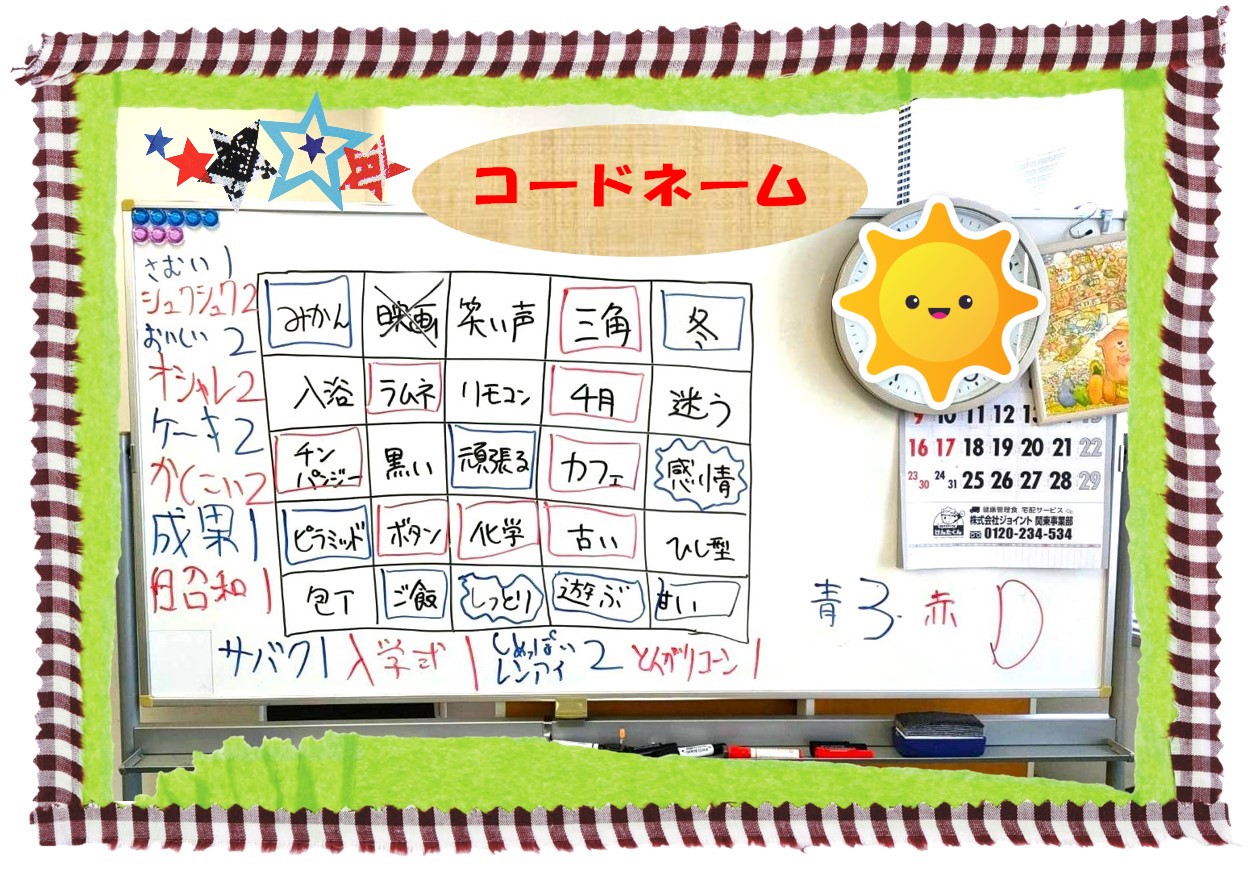 コードネーム
さむい 1
シュワシュワ2
おいしい 2
オシャレ2
ケーキ2
かしこい2
成果 1
昭和 1
みかん 映画 笑い声 三角 冬
入浴 ラムネ リモコン 4月 迷う
チンパンジー 黒い 頑張る カフェ 感情
ピラミッド ボタン 化学 古い ひし型
包丁 ご飯 しっとり 遊ぶ 甘い
サバク1 入学式 1 しょっぱいレンアイ 2 とんがりコーン 1
青 3 赤
9 10 11 12 13 15
16 17 18 19 20 21 22
23 30 24 31 25 26 27 28 29
健康管理食 宅配サービス
株式会社ジョイント 関東事業部
0120-234-534